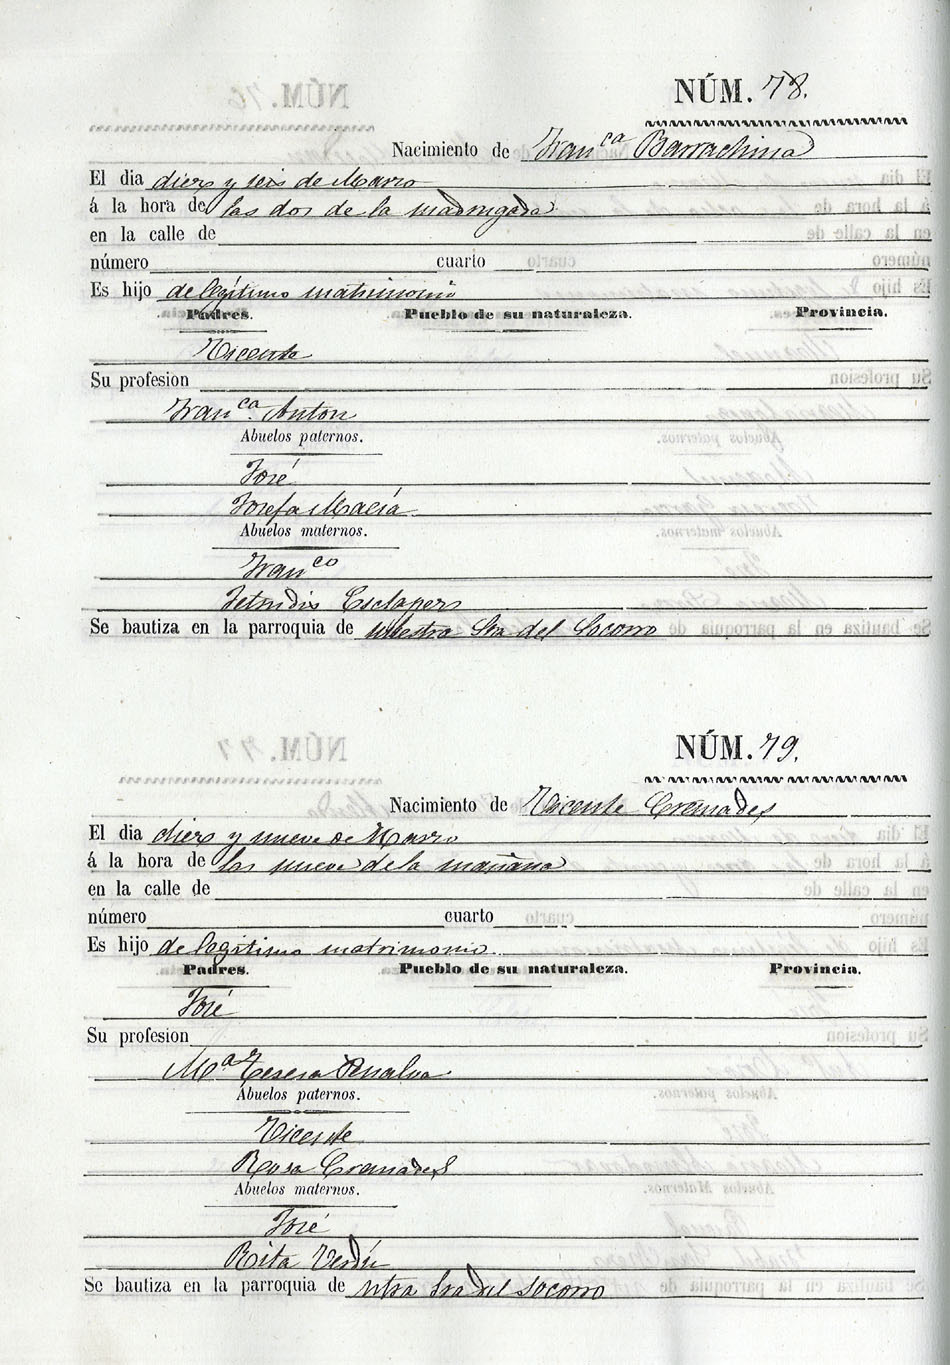 NÚM. 78.
Nacimiento de Fran.ca Barrachina
El dia diez y seis de Marzo
á la hora de las dos de la madrugada
en la calle de
número cuarto
Es hijo de legítimo matrimonio
Padres. Pueblo de su naturaleza. Provincia.
Vicente
Su profesion
Fran.ca Anton
Abuelos paternos.
José
Josefa Maciá
Abuelos maternos.
Fran.co
Getrudis Esclapez
Se bautiza en la parroquia de nuestra Sra del Socorro
NÚM. 79.
Nacimiento de Vicente Cremades
El dia diez y nueve de Marzo
á la hora de las nueve de la mañana
en la calle de
número cuarto
Es hijo de legítimo matrimonio.
Padres. Pueblo de su naturaleza. Provincia.
José
Su profesion
Mª Teresa Penalva
Abuelos paternos.
Vicente
Rosa Cremades
Abuelos maternos.
José
Rita Verdú
Se bautiza en la parroquia de ntra Sra del Socorro